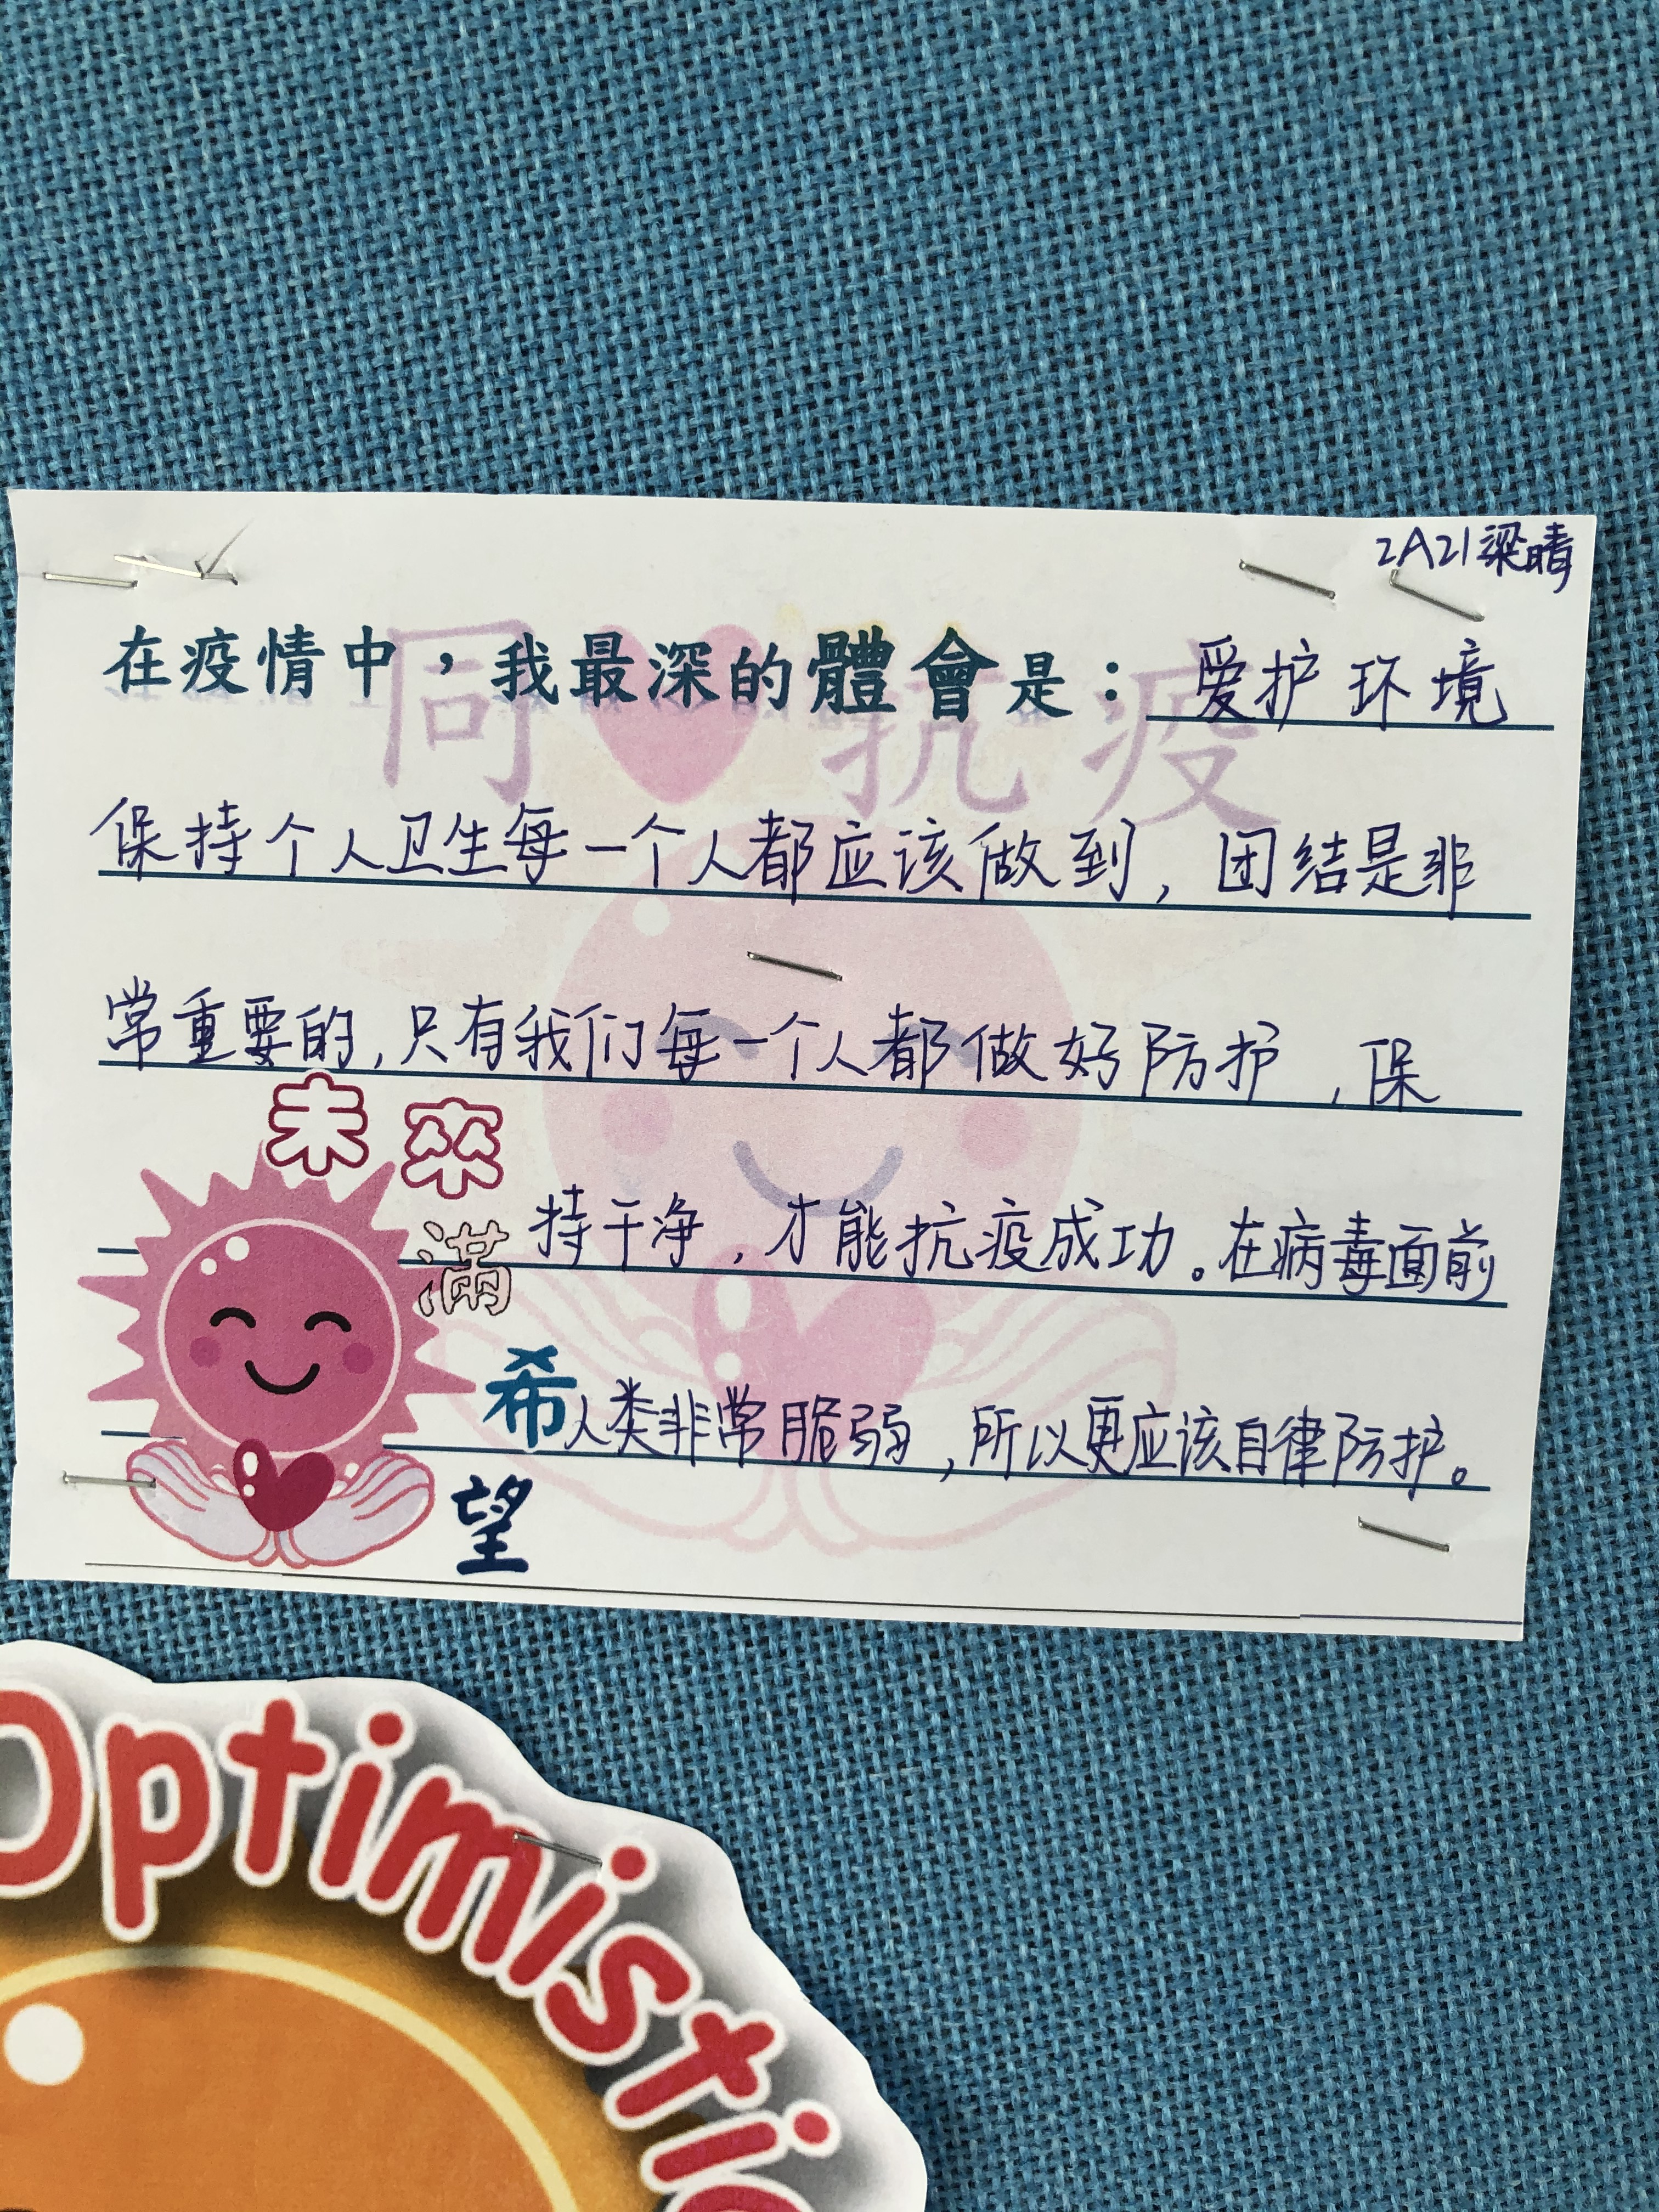 2A21梁晴
在疫情中，我最深的體會是：爱护环境
同 抗疫
保持个人卫生每一个人都应该做到，团结是非
常重要的，只有我们每一个人都做好防护，保
未來
滿
持干净，才能抗疫成功。在病毒面前
希
人类非常脆弱，所以更应该自律防护。
望
Optimistic